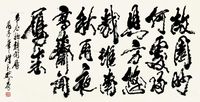 故園眇
何處歸
思方悠
哉淮南
秋雨夜
高齋聞
雁來